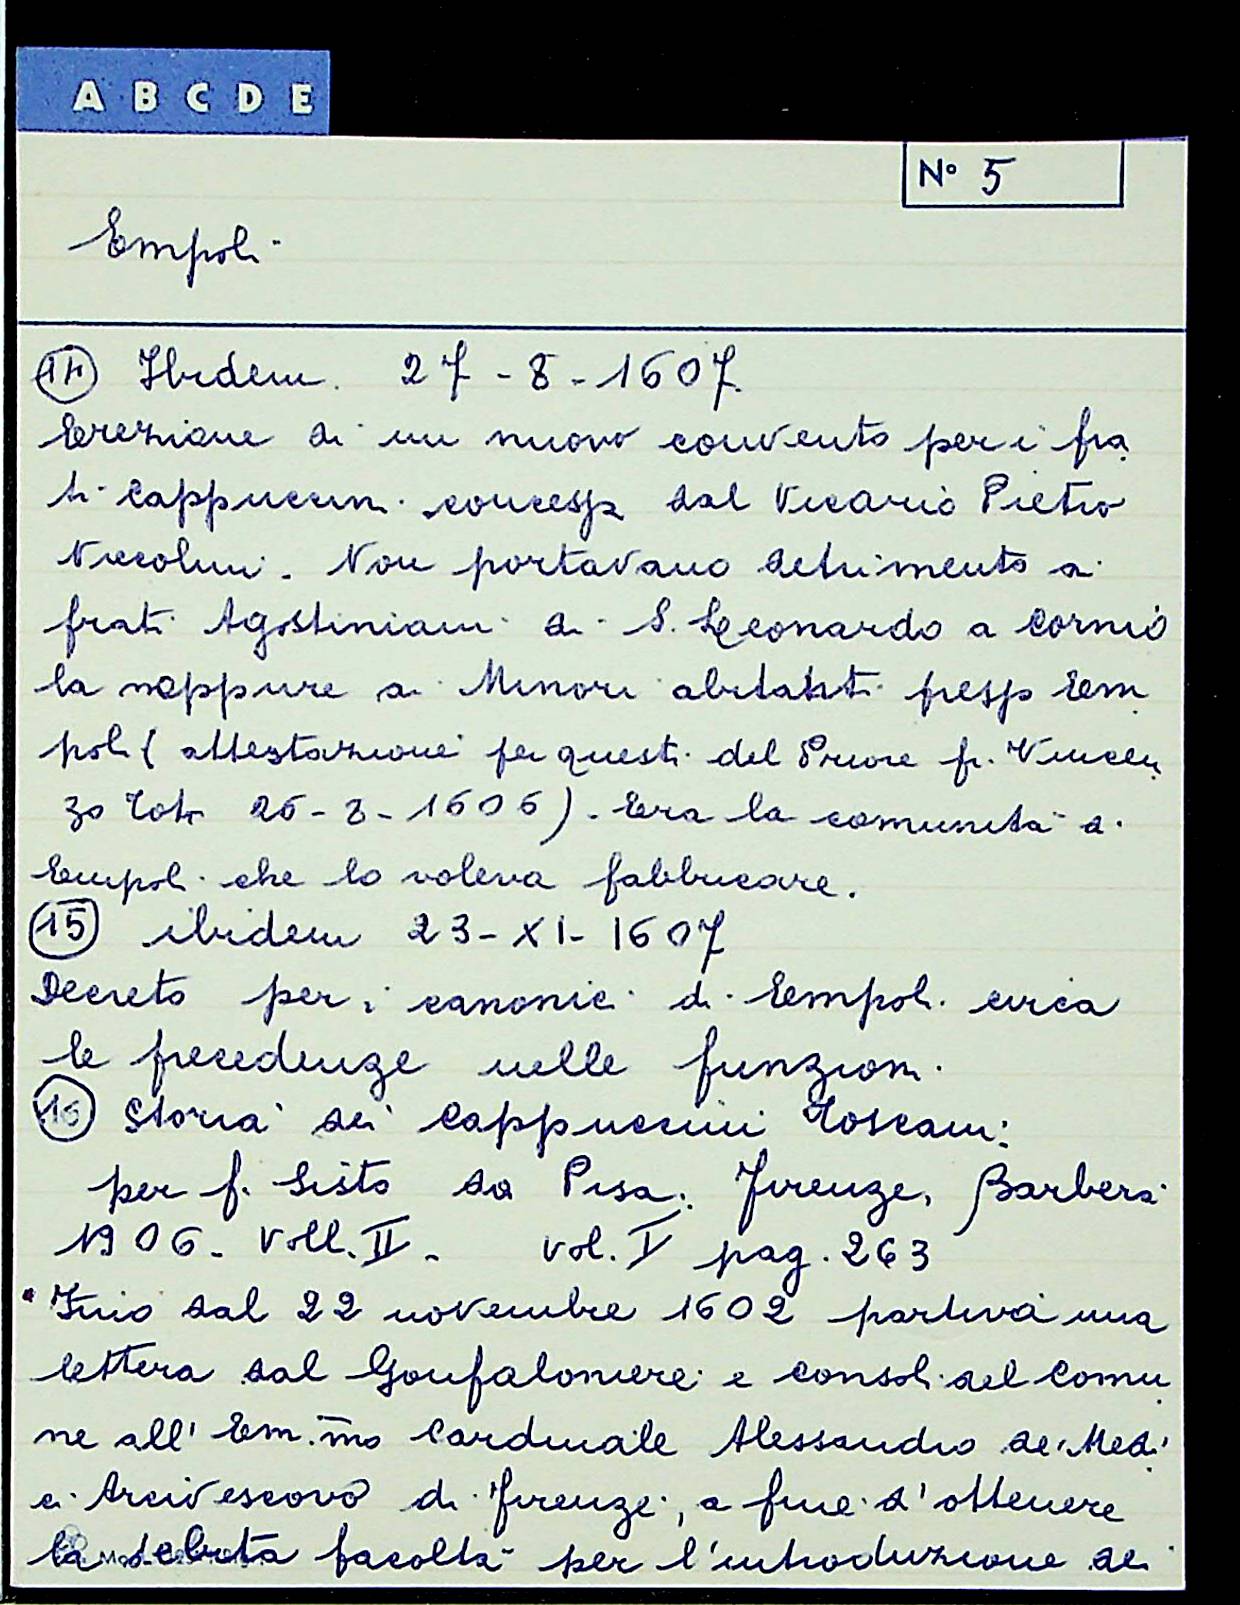 A B C D E
N° 5
Empoli
14 Ibidem. 27-8-1607.
Erezione di un nuovo convento per i fra
ti cappuccini concesso dal Vicario Pietro
Niccolini. Non portavano detrimento ai
frati Agostiniani di S. Leonardo a Cornio
la neppure ai Minori abitanti presso Em
poli (attestazione per questi del Priore fr. Vincen
zo 1606). Era la comunità di
Empoli che lo voleva fabbricare.
15 ibidem 23-XI-1607
Decreto per i canonici di Empoli circa
le precedenze nelle funzioni.
16 Storia dei Cappuccini Toscani:
per f. Sisto da Pisa. Firenze, Barbera
1906. Voll. II. vol. I pag. 263
Fino dal 22 novembre 1602 partiva una
lettera dal Gonfaloniere e consoli del Comu
ne all' Em.mo Cardinale Alessandro de' Medi
ci Arcivescovo di Firenze, a fine d'ottenere
la debita facoltà per l'introduzione dei